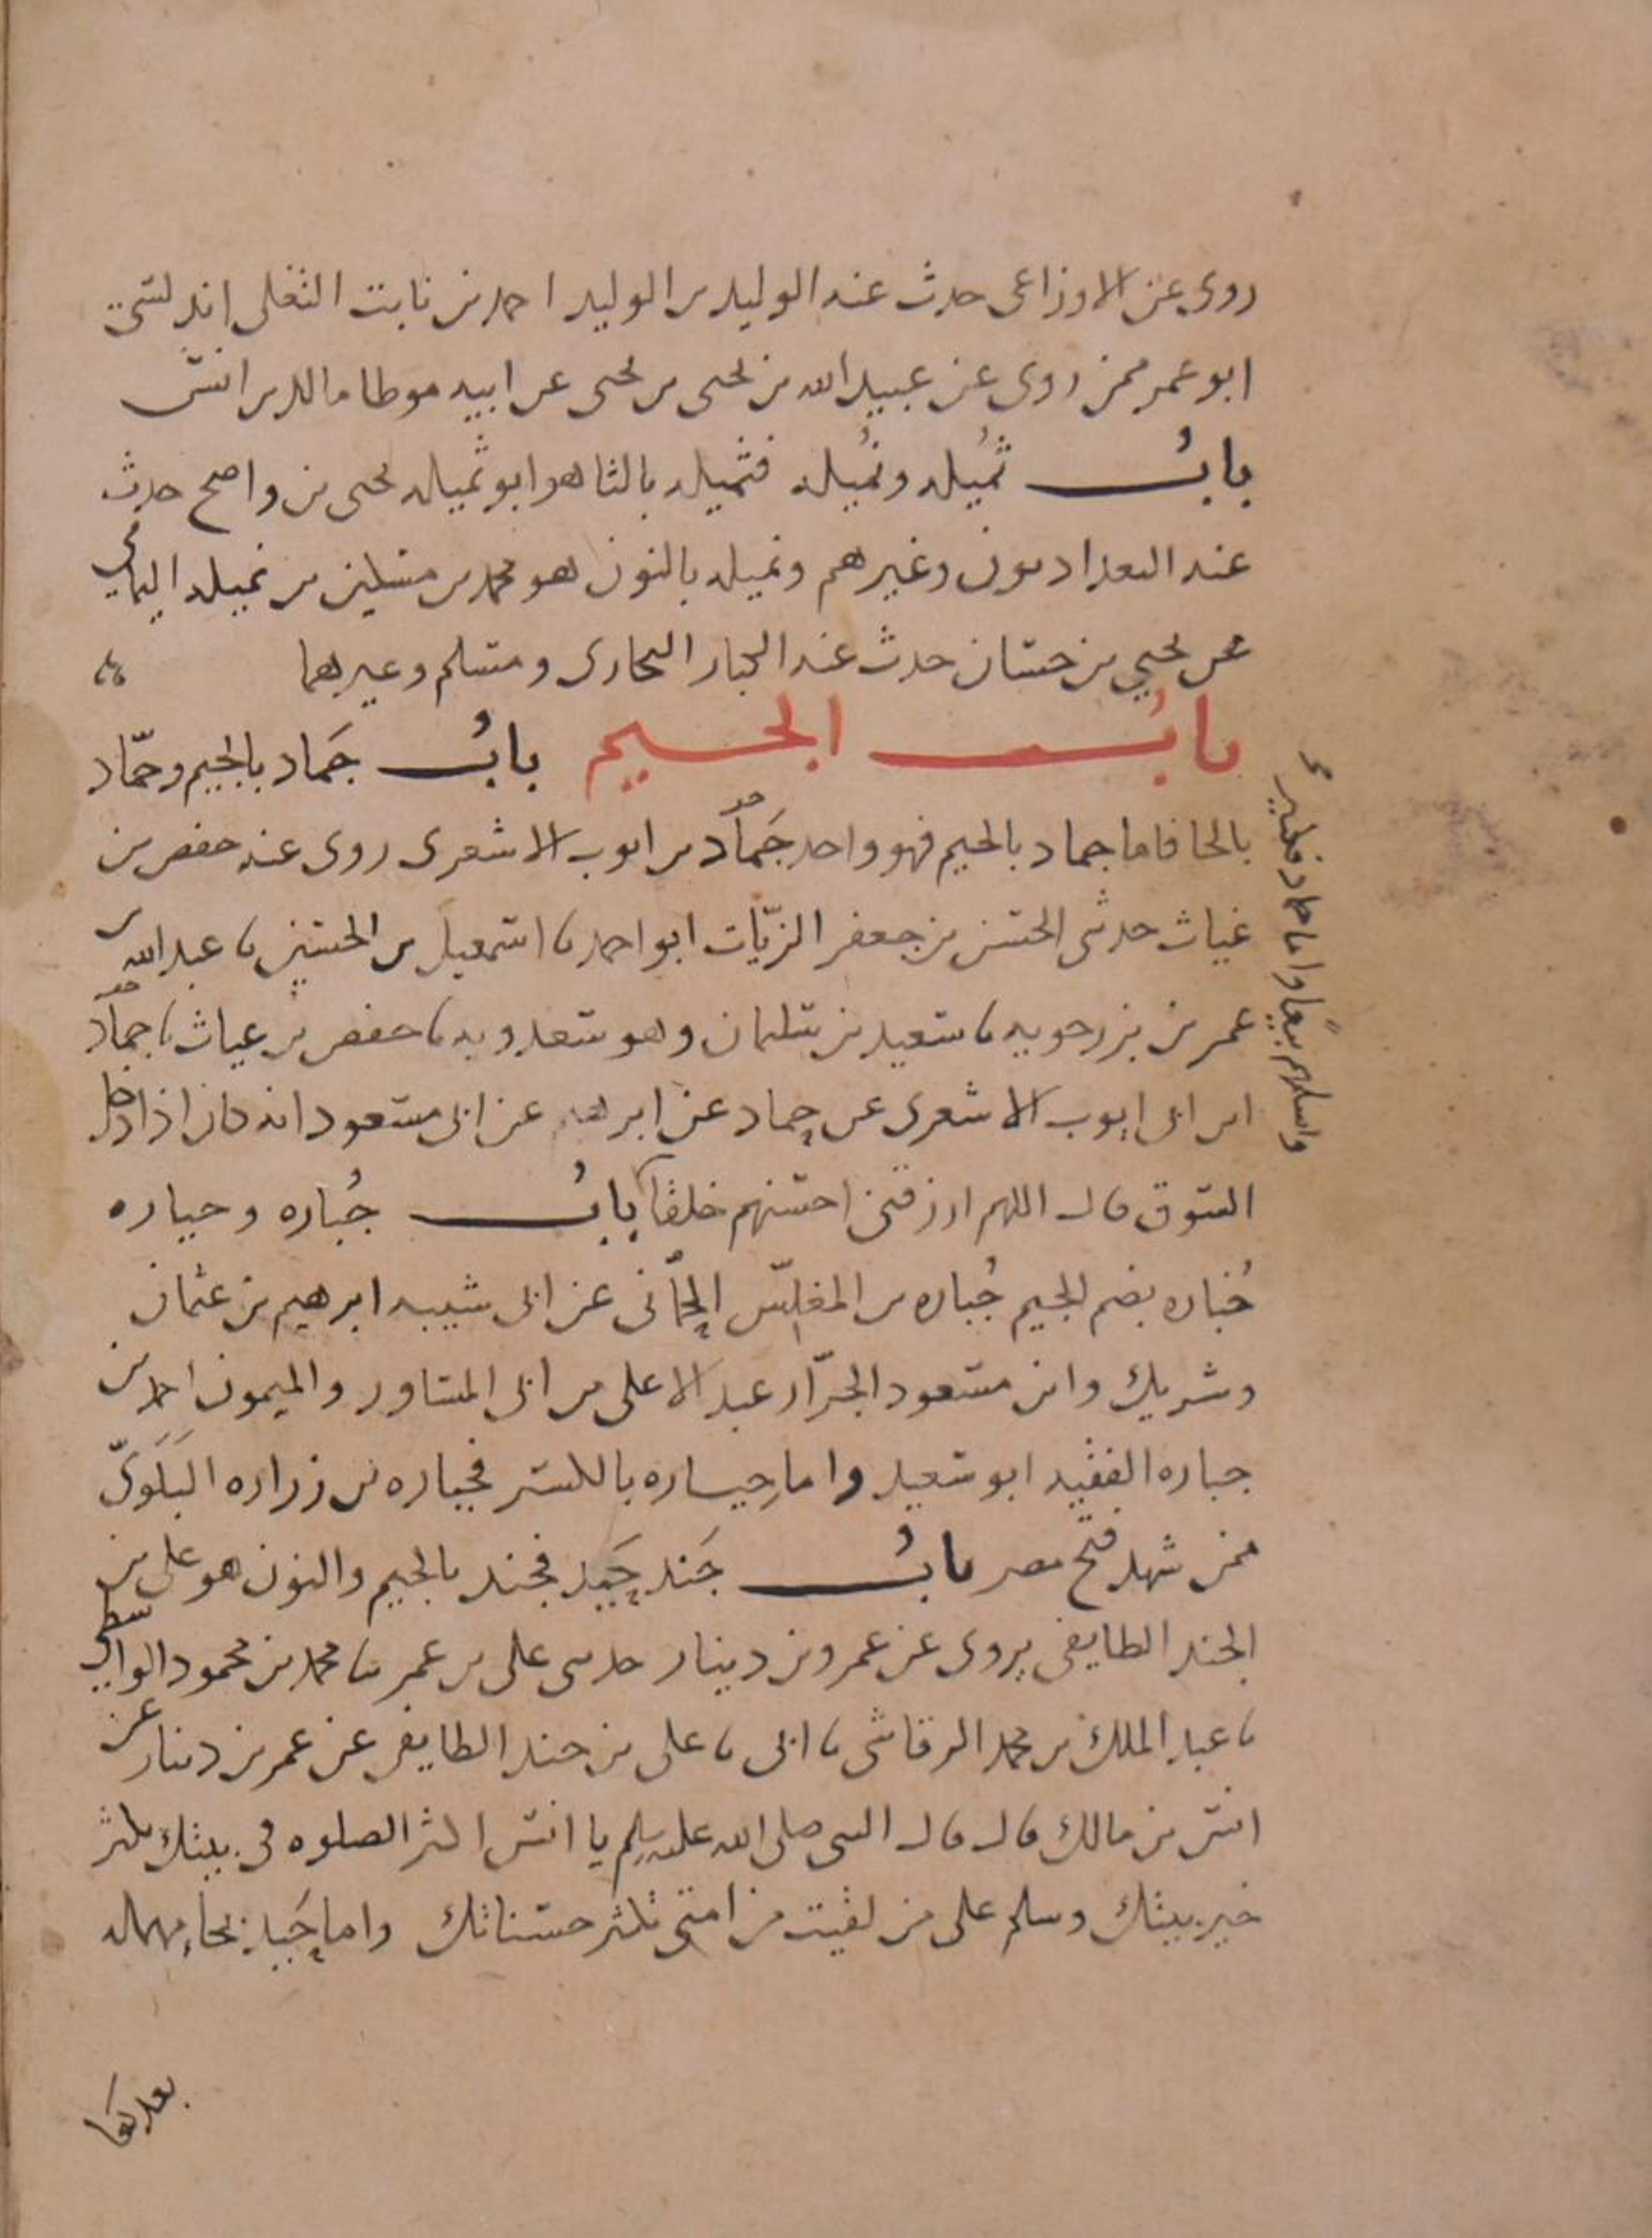 روى عن الاوزاعى حدث عنه الوليد بن الوليد احمد بن ثابت الثغلبى اندلسى
ابو عمر ممن روى عن عبيد الله بن يحيى بن يحيى عن ابيه موطا مالك بن انس
باب ثميله ونميله فثميله بالثا هو ابو ثميله يحيى بن واضح حدث
عنه البغداديون وغيرهم ونميله بالنون هو محمد بن مسكين بن نميله اليمامى
عن يحيى بن حسان حدث عنه الجبار البخارى ومسلم وغيرهما
باب الجيم باب جماد بالجيم وحماد
بالحا فاما جماد بالجيم فهو واحد جماد بن ايوب الاشعرى روى عنه حفص بن
غياث حدثنى الحسن بن جعفر الزيات ابو احمد نا اسمعيل بن الحسين نا عبد الله بن
عمر بن بزرحويه نا سعيد بن سليمان وهو سعدويه نا حفص بن غياث نا جماد
ابن ابى ايوب الاشعرى عن حماد عن ابرهيم عن ابى مسعود انه كان اذا دخل
السوق قال اللهم ارزقنى احسنهم خلقا باب جباره وحباره
جباره بضم الجيم جباره بن المغلس الحمانى عن ابى شيبه ابرهيم بن عثمان
وشريك وابن مسعود الجرار عبد الاعلى بن ابى المساور والميمون احمد بن
جباره الفقيه ابو سعيد واما حباره بالكسر فحباره بن زراره البلوى
ممن شهد فتح مصر باب جند حبيد فجند بالجيم والنون هو على بن
الجند الطايفى يروى عن عمرو بن دينار حدثنى على بن عمر نا محمد بن محمود الواسطى
نا عبد الملك بن محمد الرقاشى نا ابى نا على بن جند الطايفى عن عمر بن دينار عن
انس بن مالك قال قال النبى صلى الله عليه وسلم يا انس اكثر الصلوه فى بيتك يكثر
خير بيتك وسلم على من لقيت من امتى تكثر حسناتك واما حبيد بحاء مهمله
واما حماد فكثير
بعدها